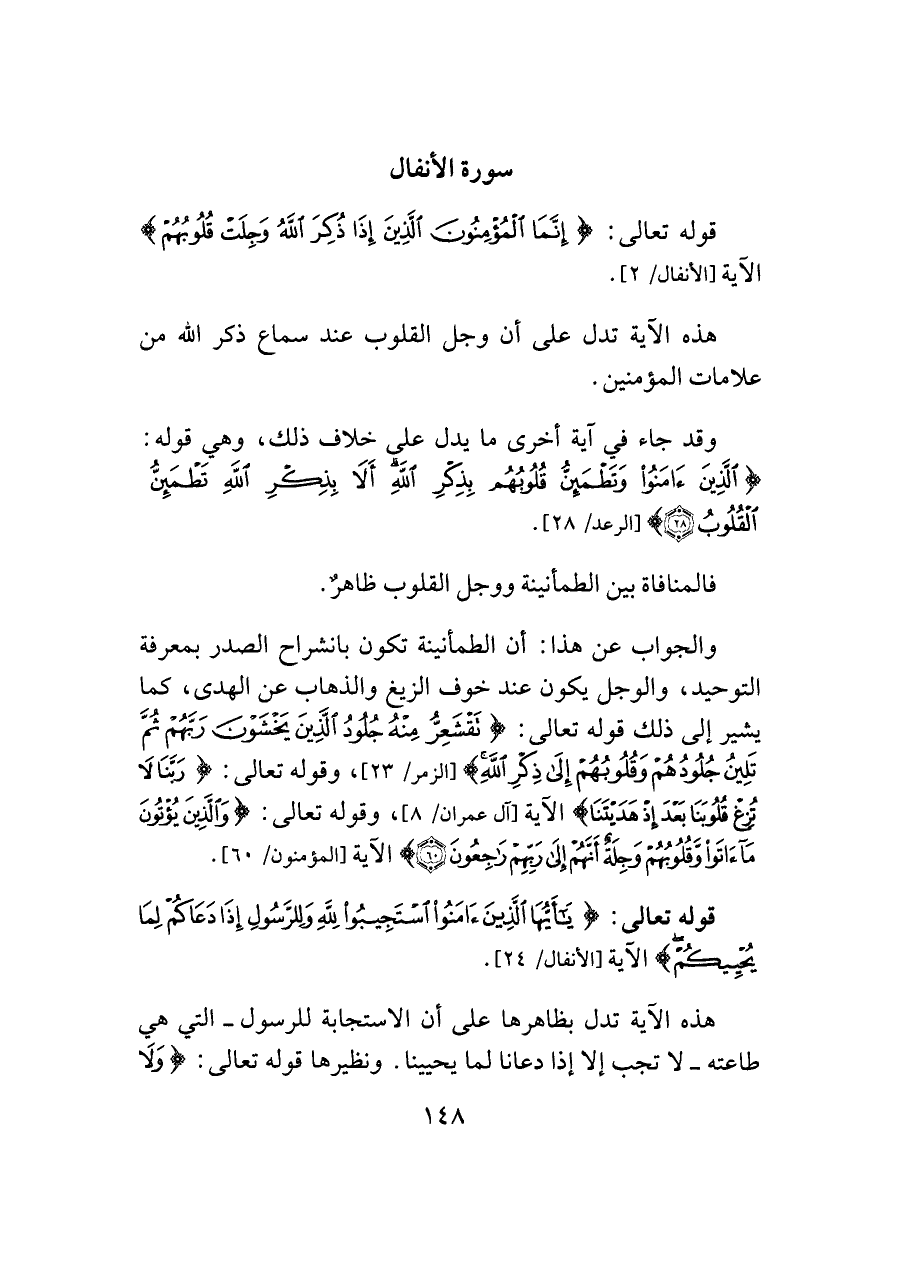 سورة الأنفال
قوله تعالى: ﴿ إِنَّمَا ٱلْمُؤْمِنُونَ ٱلَّذِينَ إِذَا ذُكِرَ ٱللَّهُ وَجِلَتْ قُلُوبُهُمْ ﴾
الآية [الأنفال/ ٢].
هذه الآية تدل على أن وجل القلوب عند سماع ذكر الله من
علامات المؤمنين.
وقد جاء في آية أخرى ما يدل على خلاف ذلك، وهي قوله:
﴿ ٱلَّذِينَ ءَامَنُوا۟ وَتَطْمَئِنُّ قُلُوبُهُم بِذِكْرِ ٱللَّهِ ۗ أَلَا بِذِكْرِ ٱللَّهِ تَطْمَئِنُّ
ٱلْقُلُوبُ ۝٢٨ ﴾ [الرعد/ ٢٨].
فالمنافاة بين الطمأنينة ووجل القلوب ظاهرٌ.
والجواب عن هذا: أن الطمأنينة تكون بانشراح الصدر بمعرفة
التوحيد، والوجل يكون عند خوف الزيغ والذهاب عن الهدى، كما
يشير إلى ذلك قوله تعالى: ﴿ تَقْشَعِرُّ مِنْهُ جُلُودُ ٱلَّذِينَ يَخْشَوْنَ رَبَّهُمْ ثُمَّ
تَلِينُ جُلُودُهُمْ وَقُلُوبُهُمْ إِلَىٰ ذِكْرِ ٱللَّهِ ۚ ﴾ [الزمر/ ٢٣]، وقوله تعالى: ﴿ رَبَّنَا لَا
تُزِغْ قُلُوبَنَا بَعْدَ إِذْ هَدَيْتَنَا ﴾ الآية [آل عمران/ ٨]، وقوله تعالى: ﴿ وَٱلَّذِينَ يُؤْتُونَ
مَآ ءَاتَوا۟ وَّقُلُوبُهُمْ وَجِلَةٌ أَنَّهُمْ إِلَىٰ رَبِّهِمْ رَٰجِعُونَ ۝٦٠ ﴾ الآية [المؤمنون/ ٦٠].
قوله تعالى: ﴿ يَـٰٓأَيُّهَا ٱلَّذِينَ ءَامَنُوا۟ ٱسْتَجِيبُوا۟ لِلَّهِ وَلِلرَّسُولِ إِذَا دَعَاكُمْ لِمَا
يُحْيِيكُمْ ۖ ﴾ الآية [الأنفال/ ٢٤].
هذه الآية تدل بظاهرها على أن الاستجابة للرسول ـ التي هي
طاعته ـ لا تجب إلا إذا دعانا لما يحيينا. ونظيرها قوله تعالى: ﴿ وَلَا
١٤٨